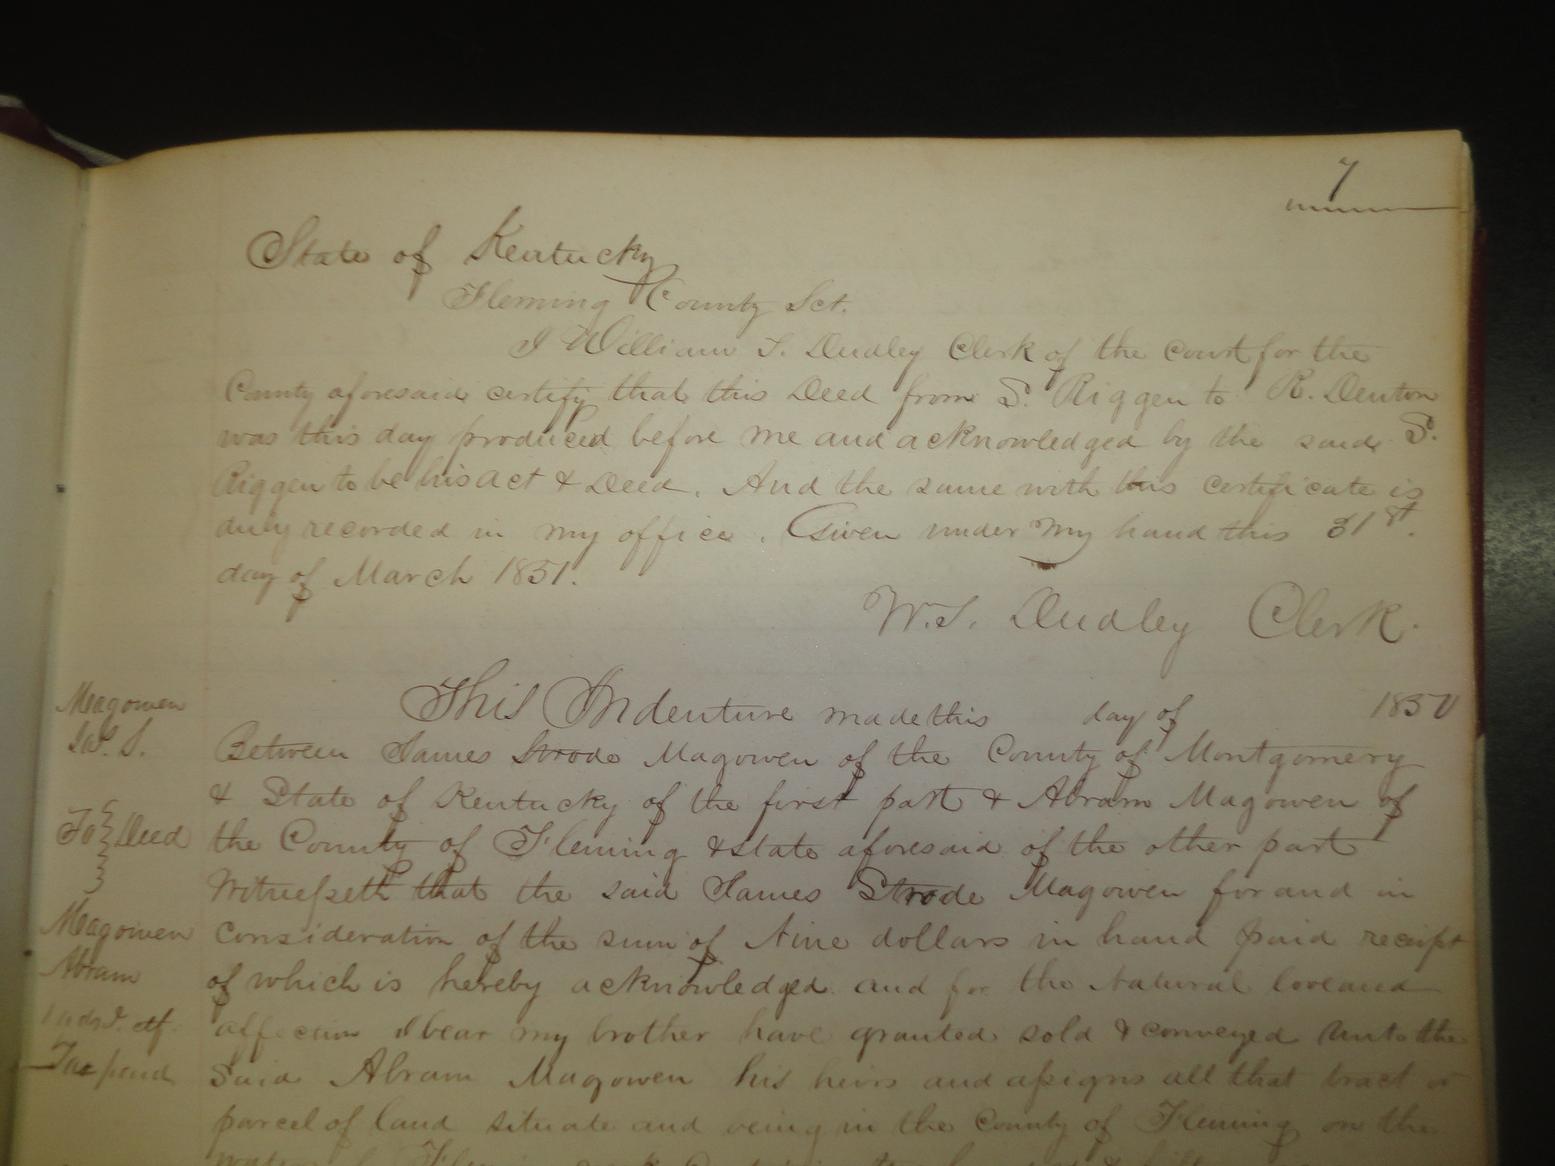 7
State of Kentucky
Fleming County Sct.
I William T. Dudley Clerk of the court for the
County aforesaid certify that this Deed from S. Riggen to R. Denton
was this day produced before me and acknowledged by the said S.
Riggen to be his act & Deed. And the same with this certificate is
duly recorded in my office. Given under my hand this 31st.
day of March 1851.
W.T. Dudley Clerk.
This Indenture made this day of 1850
Between James Strode Magowen of the County of Montgomery
& State of Kentucky of the first part & Abram Magowen of
the County of Fleming & state aforesaid of the other part
Witnesseth that the said James Strode Magowen for and in
consideration of the sum of Nine dollars in hand paid receipt
of which is hereby acknowledged and for the Natural love and
affection I bear my brother have granted sold & conveyed unto the
Said Abram Magowen his heirs and assigns all that tract or
parcel of land situate and being in the County of Fleming on the
Magowen
Jas. S.
To Deed
Magowen
Abram
Tax paid